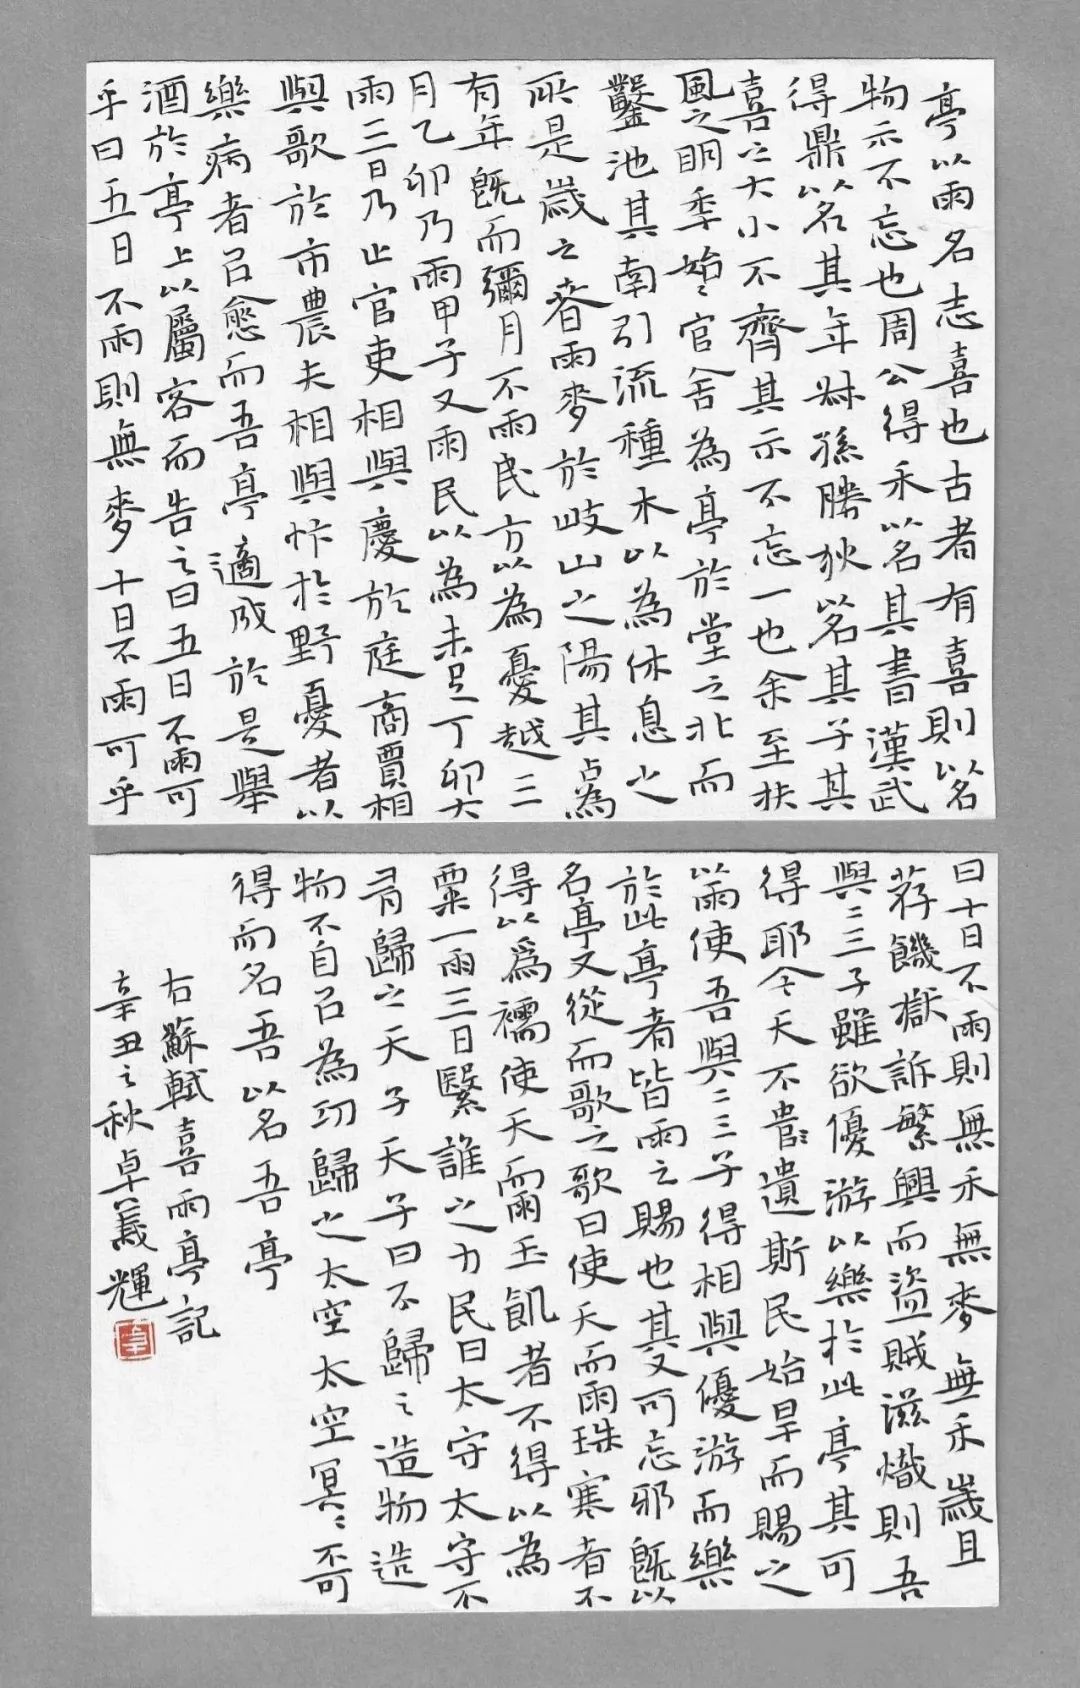 亭以雨名志喜也古者有喜則以名
物示不忘也周公得禾以名其書漢武
得鼎以名其年叔孫勝狄以名其子其
喜之大小不齊其示不忘一也余至扶
風之明秊始〻官舍為亭於堂之北而
鑿池其南引流種木以為休息之
所是歲之春雨麥於岐山之陽其占為
有年既而彌月不雨民方以為憂越三
月乙卯乃雨甲子又雨民以為未足丁卯大
雨三日乃止官吏相與慶於庭商賈相
與歌於市農夫相與忭於野憂者以
樂病者以愈而吾亭適成於是舉
酒於亭上以屬客而告之曰五日不雨可
乎曰五日不雨則無麥十日不雨可乎
曰十日不雨則無禾無麥無禾歲且
荐饑獄訴繁興而盜賊滋熾則吾
與二三子雖欲優游以樂於此亭其可
得耶今天不遺斯民始旱而賜之
以雨使吾與二三子得相與優游而樂
於此亭者皆雨之賜也其又可忘邪既以
名亭又從而歌之歌曰使天而雨珠寒者不
得以爲襦使天而雨玉飢者不得以為
粟一雨三日繄誰之力民曰太守太守不
有歸之天子天子曰不歸之造物造
物不自以為功歸之太空太空冥〻不可
得而名吾以名吾亭
右蘇軾喜雨亭記
辛丑之秋卓義輝
卓